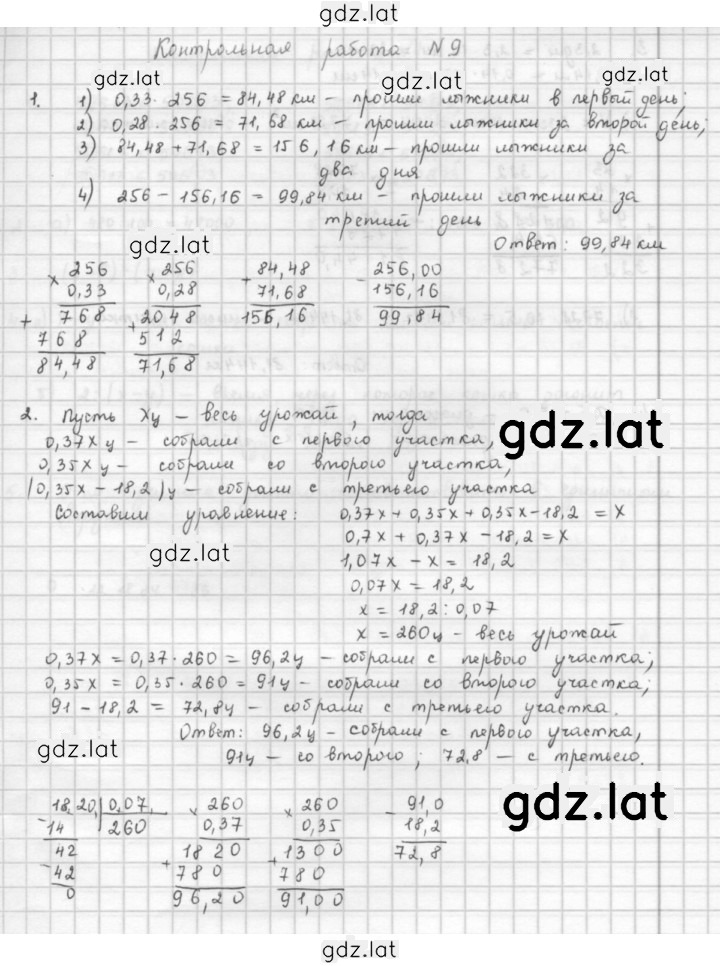 gdz.lat
Контрольная работа N 9
gdz.lat gdz.lat gdz.lat
1. 1) 0,33 · 256 = 84,48 км – прошли лыжники в первый день;
2) 0,28 · 256 = 71,68 км – прошли лыжники за второй день;
3) 84,48 + 71,68 = 156,16 км – прошли лыжники за
два дня
4) 256 – 156,16 = 99,84 км – прошли лыжники за
третий день
gdz.lat
Ответ: 99,84 км
× 256 × 256 + 84,48 - 256,00
0,33 0,28 71,68 156,16
+ 768 + 2048 156,16 99,84
768 512
84,48 71,68
2. Пусть Xц – весь урожай, тогда
0,37x ц – собрали с первого участка,
gdz.lat
0,35x ц – собрали со второго участка,
(0,35x – 18,2)ц – собрали с третьего участка
Составим уравнение: 0,37x + 0,35x + 0,35x – 18,2 = X
0,7x + 0,37x – 18,2 = x
gdz.lat
1,07x – x = 18,2
0,07x = 18,2
x = 18,2 : 0,07
x = 260ц – весь урожай
0,37x = 0,37 · 260 = 96,2ц – собрали с первого участка;
0,35x = 0,35 · 260 = 91ц – собрали со второго участка;
91 – 18,2 = 72,8ц – собрали с третьего участка.
Ответ: 96,2ц – собрали с первого участка,
gdz.lat
91ц – со второго; 72,8 – с третьего.
gdz.lat
18,20, 0,07, × 260 × 260 - 91,0
- 14 260 0,37 0,35 18,2
42 + 1820 + 1300 72,8
- 42 780 780
0 96,20 91,00
gdz.lat